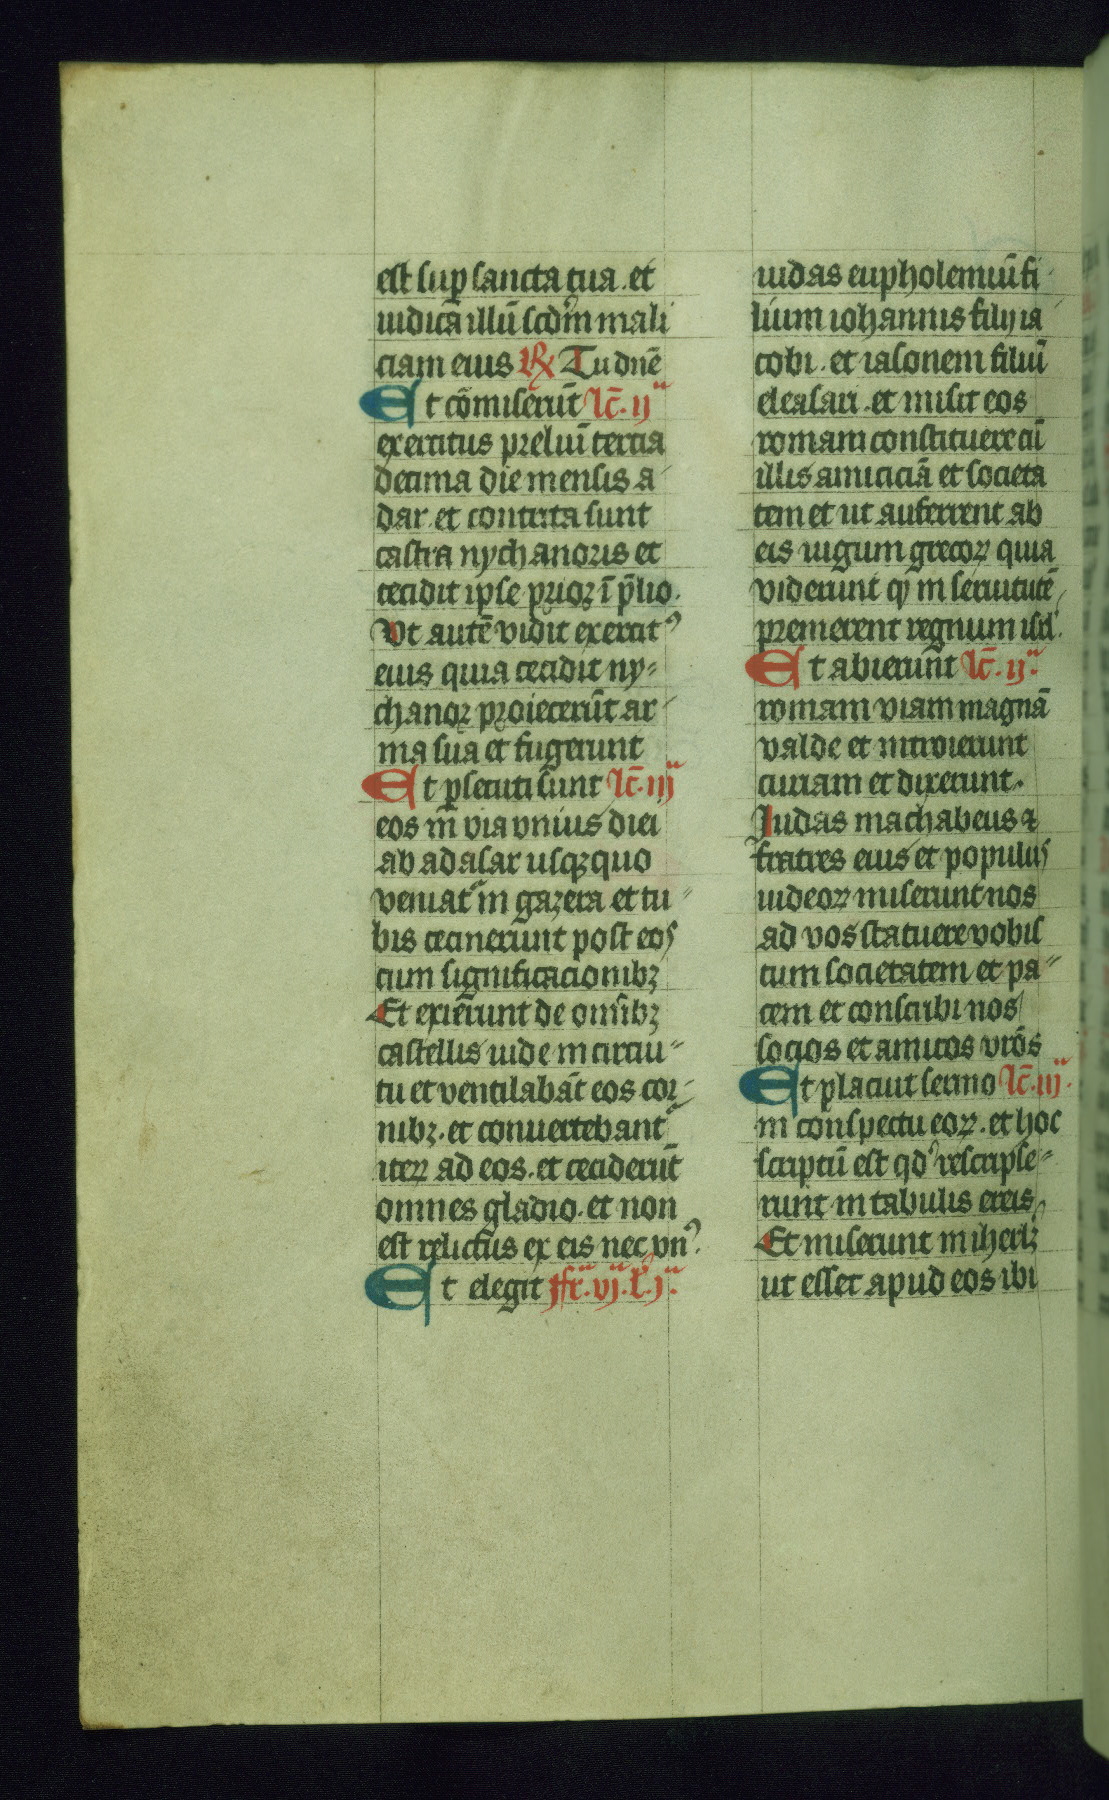 est sup sancta tua . et
iudica illū scdm mali
ciam eius R̸ Tu dn̄e
Et cōmiserūt lc̄. ijᵃ
exercitus preliū tercia
decima die mensis a
dar . et contrita sunt
castra nychanoris et
cecidit ipse prior ī p̄lio .
Vt autē vidit exercitꝰ
eius quia cecidit ny-
chanor proiecerūt ar
ma sua et fugerunt
Et ꝑsecuti sunt lc̄. iijᵃ
eos in via vnius diei
ab adasar usqꝫ quo
veniatᷣ in gazera et tu-
bis cecinerunt post eos
cum significacionibꝫ
Et exierunt de omībꝫ
castellis iude in circui-
tu et ventilabāt eos cor-
nibꝫ . et convertebantᷣ
iteꝝ ad eos . et ceciderūt
omnes gladio . et non
est relictus ex eis nec vnꝰ.
Et elegit fr̄. vj. l. jᵃ.
iudas eupholemiū fi
lium iohannis filij ia
cobi . et iasonem filiū
eleasari . et misit eos
romam constituere cū
illis amiciciā et societa
tem et ut auferrent ab
eis iugum grecoꝝ quia
viderunt ꝙ in seruitutē
premerent regnum isrl̄.
Et abierunt lc̄. ijᵃ.
romam viam magnā
valde et introierunt
curiam et dixerunt .
Iudas machabeus ⁊
fratres eius et populus
iudeoꝝ miserunt nos
ad vos statuere vobis
cum societatem et pa-
cem et conscribi nos
socios et amicos vrōs
Et placuit sermo lc̄. iijᵃ.
in conspectu eoꝝ . et hoc
scriptū est qd̄ rescripse-
runt in tabulis ereis
Et miserunt in iherlꝫ
ut esset apud eos ibi